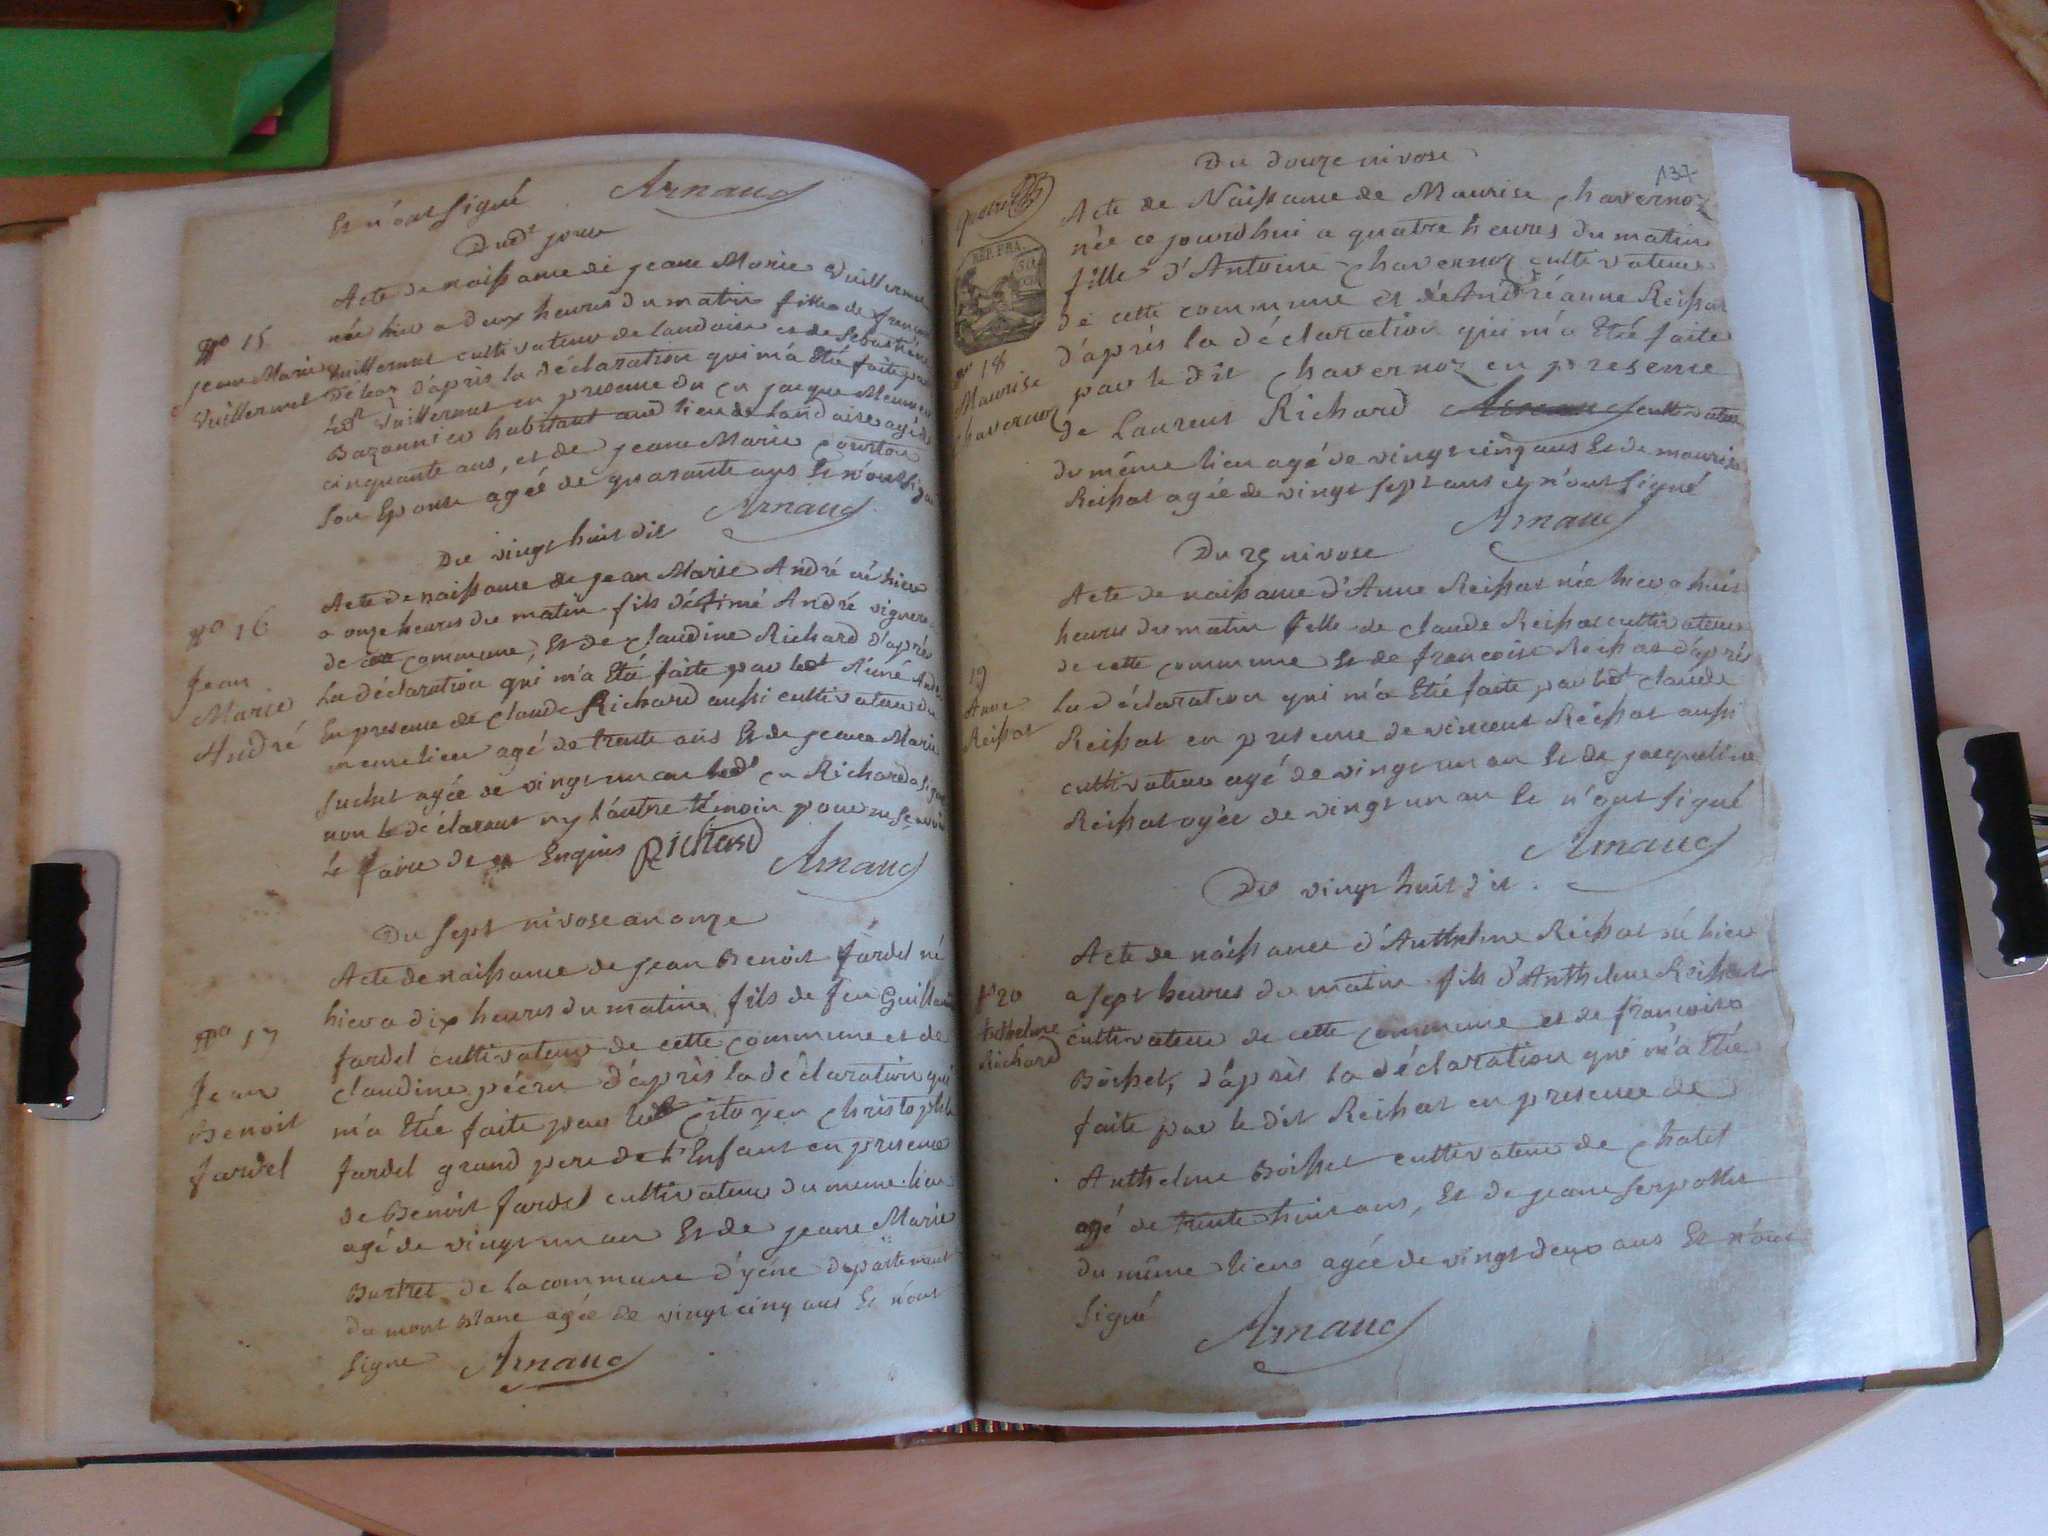 Et n'ont signé Arnaud
Dud.t jour
Acte de naissance de jeane Marie Vuillermet
née hier a deux heures du matin fille de françois
N.o 15
Vuillermet cultivateur de Landaise et de Sebastiene
jeane Marie
Vuillermet
d'après la déclaration qui m'a Eté faite par
led.t Vuillermet en presence du c.n jacque
habitant aud. lieu de Landaise agé de
cinquante ans, et de jeane Marie
son Epouse agée de quarante ans Et n'ont signé
Arnaud
Du vingt huit dit
Acte de naissance de jean Marie André né hier
N.o 16
a onze heures du matin fils d'Aimé André vigneron
de cette commune, Et de Claudine Richard d'après
Jean
La déclaration qui m'a Eté faite par led.t Aimé André
Marie
En presence de Claude Richard aussi cultivateur du
André
meme lieu agé de trente ans Et de jeane Marie
Suchet agée de vingt un an led.t c.n Richard a signé
non le déclarant ny l'autre témoin pour ne scavoir
le faire de ce Enquis Richard
Arnaud
Du sept nivose an onze
Acte de naissance de jean Benoit Jardel né
hier a dix heures du matin fils de feu Guillaume
N.o 17
Jardel cultivateur de cette commune et de
Jean
claudine d'après la déclaration qui
Benoit
m'a Eté faite par le citoyen Christophle
Jardel
Jardel grand pere de l'Enfant en presence
de Benoit Jardel cultivateur du meme lieu
agé de vingt un an Et de jeane Marie
de la commune d'yéne département
du mont Blanc agée de vingt cinq ans Et n'ont
signe Arnaud
137
Du douze nivose
Acte de Naissance de Maurise Chavernoz
née ce jourd'hui a quatre heures du matin
REP. FRA.
fille d'Antoine Chavernoz cultivateur
de cette commune et d'Andréanne Reissat
N.o 18
d'après la déclaration qui m'a Eté faite
Maurise
Chavernoz
par le dit Chavernoz en presence
de Laurent Richard cultivateur
du même lieu agé de vingt cinq ans Et de maurise
Reissat agée de vingt sept ans et n'ont signé
Arnaud
Du 25 nivose
Acte de naissance d'Anne Reissat née hier a huit
heures du matin fille de claude Reissat cultivateur
19
Anne
Reissat
de cette commune Et de françoise Reissat d'après
la déclaration qui m'a Eté faite par led.t claude
Reissat en presence de vincent Reissat aussi
cultivateur agé de vingt un an Et de jacqueline
Reissat agée de vingt un an Et n'ont signé
Arnaud
Du vingt huit dit
Acte de naissance d'Anthelme Reissat né hier
N.o 20
a sept heures du matin fils d'Anthelme Reissat
Anthelme
Richard
cultivateur de cette commune et de françoise
Boissel, d'après la déclaration qui m'a Eté
faite par le dit Reissat en presence de
Anthelme Boissel cultivateur de
agé de trente huit ans, Et de jeane Serpollet
du même lieu agée de vingt deux ans Et n'ont
signé Arnaud